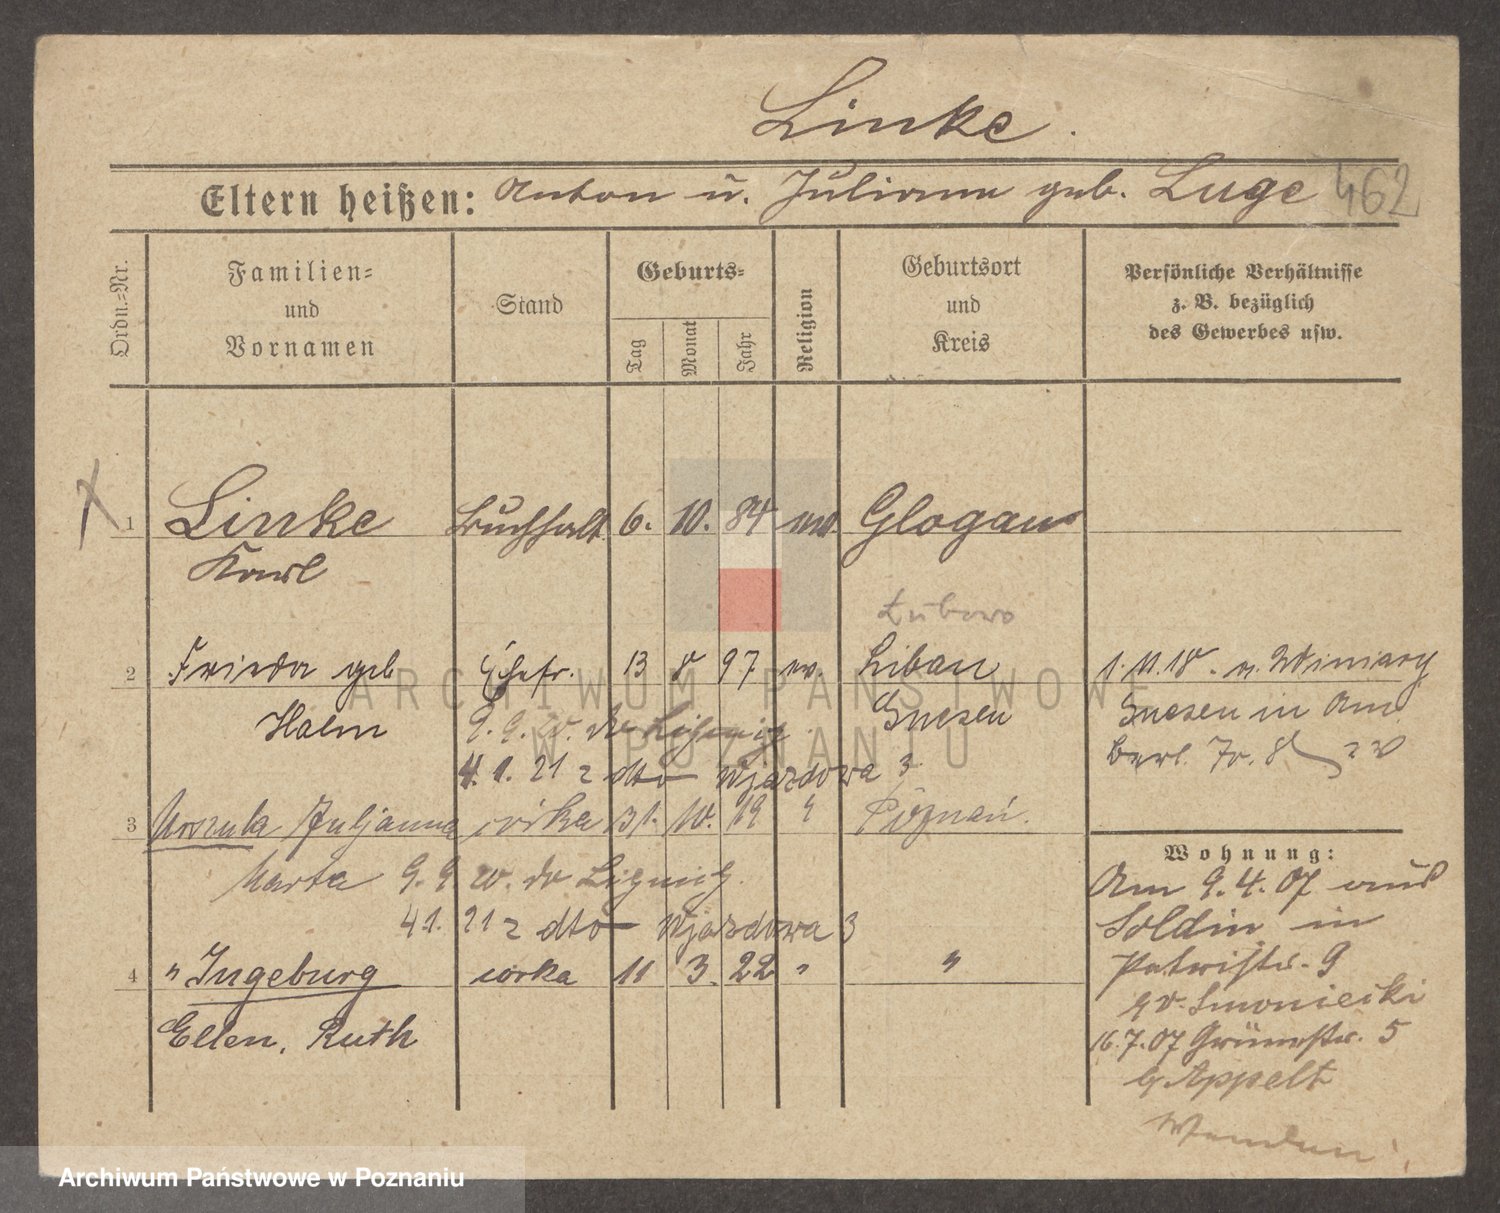 Linke.
Eltern heißen: Anton u. Julianna geb. Luge 462
Ordn.=Nr.
Familien=
und
Vornamen
Stand
Geburts=
Tag
Monat
Jahr
Religion
Geburtsort
und
Kreis
Persönliche Verhältnisse
z. B. bezüglich
des Gewerbes usw.
1 Linke Buchhalt. 6. 10. 84 ev. Glogau
Karl
Łubowo
2 Frieda geb Ehefr. 13 8 97 ev. Libau 1.11.18. v. Winiary
Halm 9.9. do Gnesen Gnesen in Am
4.1. 21 z dto Wjazdowa 3 Berl. 8
3 Urszula Juljanna córka 31. 10. 19 " Poznań.
Wohnung:
Marta 9.9 do Am 9.4.07 aus
41. 21 z dto Wjazdowa 3 Soldin in
4 " Ingeburg córka 11 3. 22 " " Patristr. 9
Ellen, Ruth
16.7.07 Grünestr. 5
b/ Appelt
Archiwum Państwowe w Poznaniu
ARCHIWUM PAŃSTWOWE
W POZNANIU